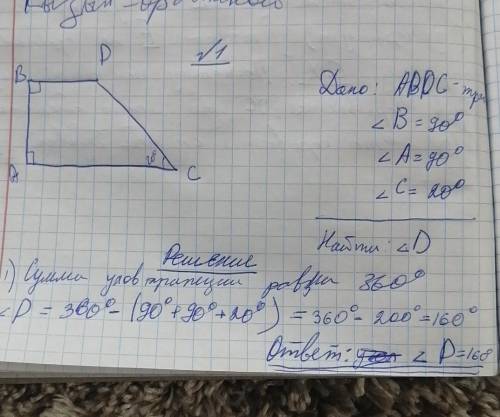 √1
B
D
A
C
Дано: ABDC-тра
∠B=90°
∠A=90°
∠C=20°
Найти: ∠D
Решение
1) Сумма углов трапеции равна 360°
∠D = 360° - (90°+90°+20°) = 360° - 200° = 160°
Ответ: ∠D=160